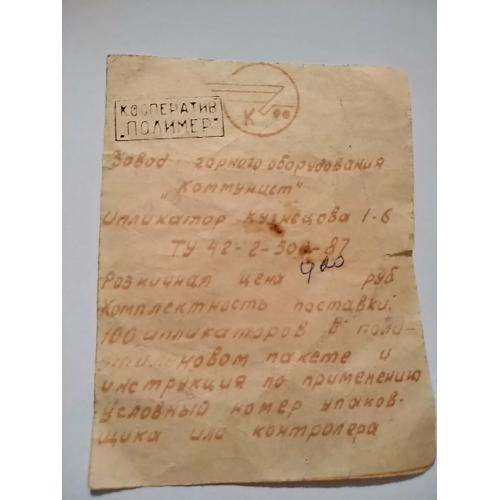 КООПЕРАТИВ
"ПОЛИМЕР"
К
Завод горного оборудования
„Коммунист"
Ипликатор Кузнецова 1-6
ТУ 42-2-500-87
Розничная цена руб
Комплектность поставки:
100 ипликаторов в поли-
этиленовом пакете и
инструкция по применению
Условный номер упаков-
щика или контролера